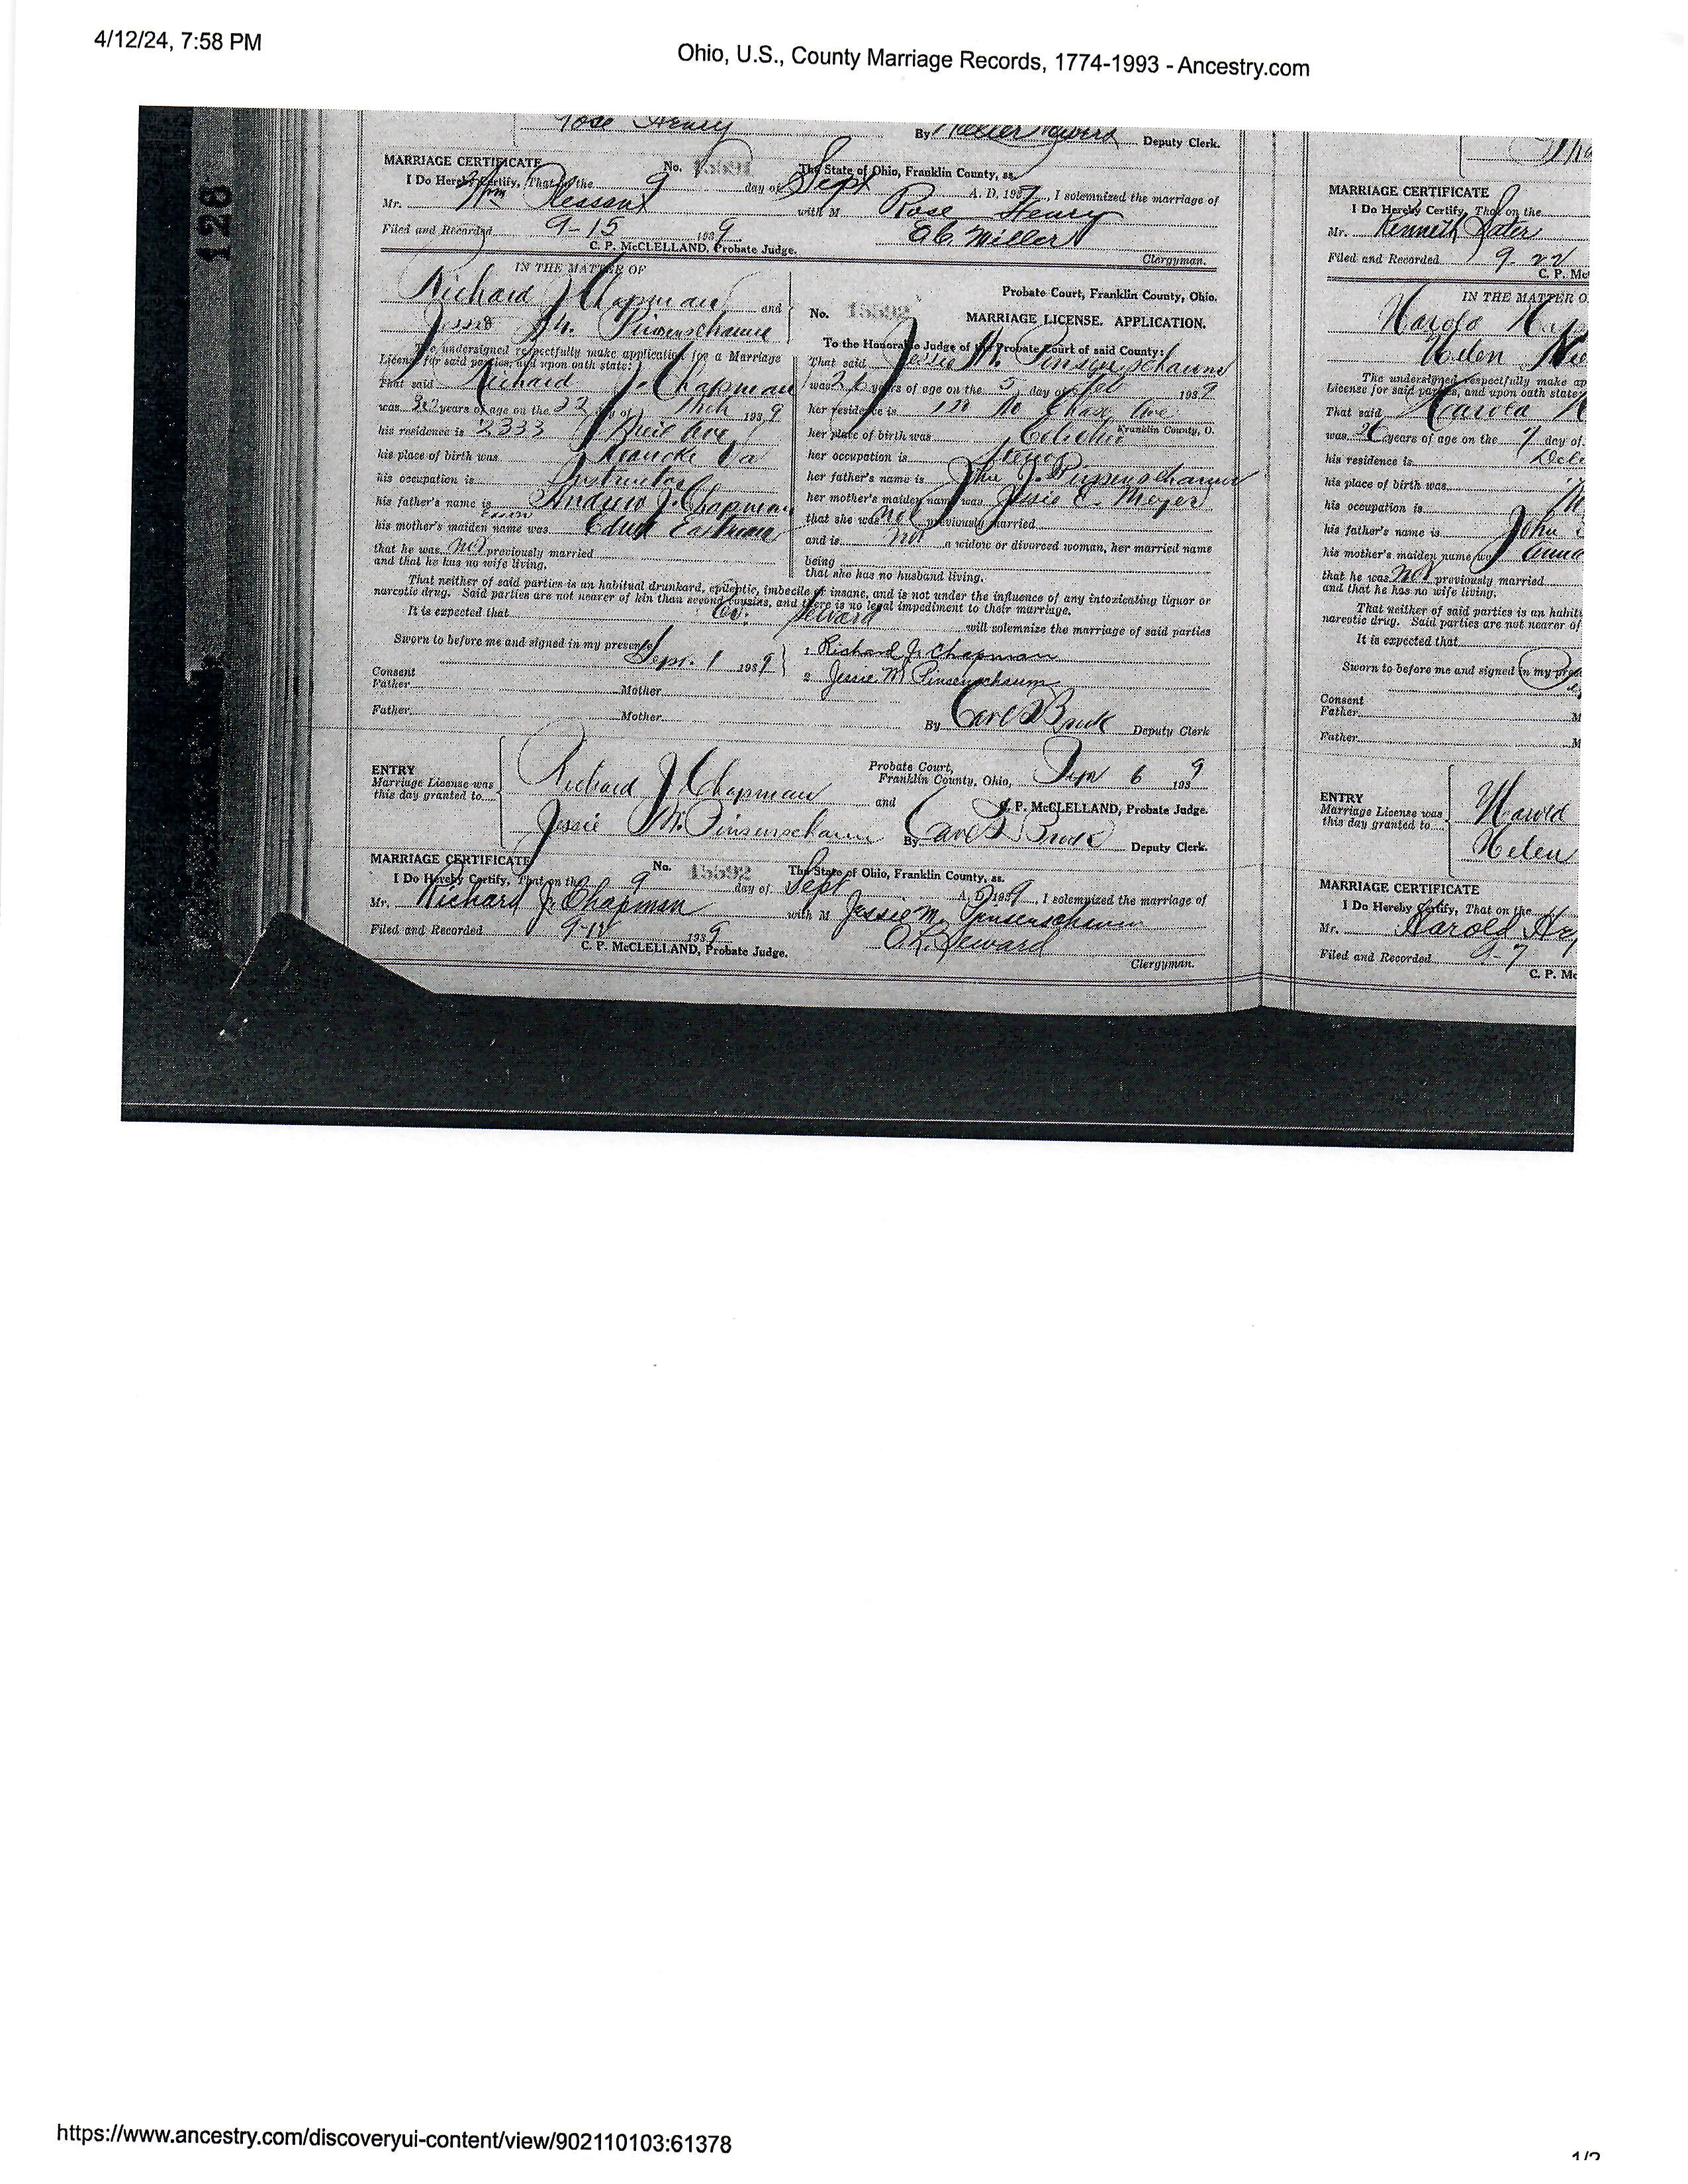 4/12/24, 7:58 PM
Ohio, U.S., County Marriage Records, 1774-1993 - Ancestry.com
128
Rose Henry By Deputy Clerk.
MARRIAGE CERTIFICATE No. 15591 The State of Ohio, Franklin County, ss.
I Do Hereby Certify, That on the 9 day of Sept A. D. 193 , I solemnized the marriage of
Mr. Wm with M Rose Henry
Filed and Recorded 9-15 1939 Miller
C. P. McCLELLAND, Probate Judge. Clergyman.
IN THE MATTER OF
Richard J Chapman and
Jessie M. Pinsenschaum
The undersigned respectfully make application for a Marriage
License for said parties, and upon oath state:
That said Richard J. Chapman
was years of age on the 22 day of Mch 1939
his residence is 2333 Ave
his place of birth was Roanoke Va
his occupation is Instructor
his father's name is Andrew J. Chapman
his mother's maiden name was
that he was not previously married
and that he has no wife living.
Probate Court, Franklin County, Ohio.
No. 15592 MARRIAGE LICENSE. APPLICATION.
To the Honorable Judge of the Probate Court of said County:
That said Jessie M. Pinsenschaum
was 26 years of age on the 5 day of Feb 1939
her residence is No Chase Ave
Franklin County, O.
her place of birth was
her occupation is Steno
her father's name is John J. Pinsenschaum
her mother's maiden name was Jessie E. Meyer
that she was not previously married
and is not a widow or divorced woman, her married name
being
that she has no husband living.
That neither of said parties is an habitual drunkard, epileptic, imbecile or insane, and is not under the influence of any intoxicating liquor or
narcotic drug. Said parties are not nearer of kin than second cousins, and there is no legal impediment to their marriage.
It is expected that Seward will solemnize the marriage of said parties
Sworn to before me and signed in my presence 1 Richard J. Chapman
Sept. 1 1939 2 Jessie M Pinsenschaum
Consent
Father Mother
Father Mother By Carl Deputy Clerk
ENTRY
Marriage License was
this day granted to
Richard J Chapman and
Jessie M. Pinsenschaum
Probate Court,
Franklin County, Ohio, 6 1939
C. P. McCLELLAND, Probate Judge.
By Carl Deputy Clerk.
MARRIAGE CERTIFICATE No. 15592 The State of Ohio, Franklin County, ss.
I Do Hereby Certify, That on the 9 day of Sept A. D. 1939 , I solemnized the marriage of
Mr. Richard J. Chapman with M Jessie M. Pinsenschaum
Filed and Recorded 9-12 1939 O.L. Seward
C. P. McCLELLAND, Probate Judge. Clergyman.
MARRIAGE CERTIFICATE
I Do Hereby Certify, That on the
Mr. Kenneth Slater
Filed and Recorded 9-22
C. P. Mc
IN THE MATTER O
Harold
Helen
The undersigned respectfully make ap
License for said parties, and upon oath state
That said Harold
was years of age on the 7 day of
his residence is
his place of birth was
his occupation is
his father's name is John
his mother's maiden name was Anna
that he was not previously married
and that he has no wife living.
That neither of said parties is an habit
narcotic drug. Said parties are not nearer of
It is expected that
Sworn to before me and signed in my pres
Consent
Father M
Father M
ENTRY
Marriage License was
this day granted to
Harold
Helen
MARRIAGE CERTIFICATE
I Do Hereby Certify, That on the
Mr. Harold
Filed and Recorded 9-7
C. P. Mc
https://www.ancestry.com/discoveryui-content/view/902110103:61378
1/2